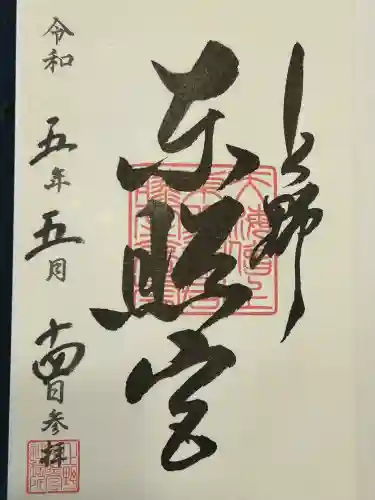 上野
東照宮
令和五年五月十四日参拝